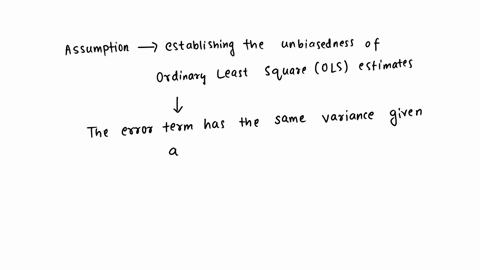 Assumption → establishing the unbiasedness of
Ordinary Least Square (OLS) estimates
↓
The error term has the same variance given
a